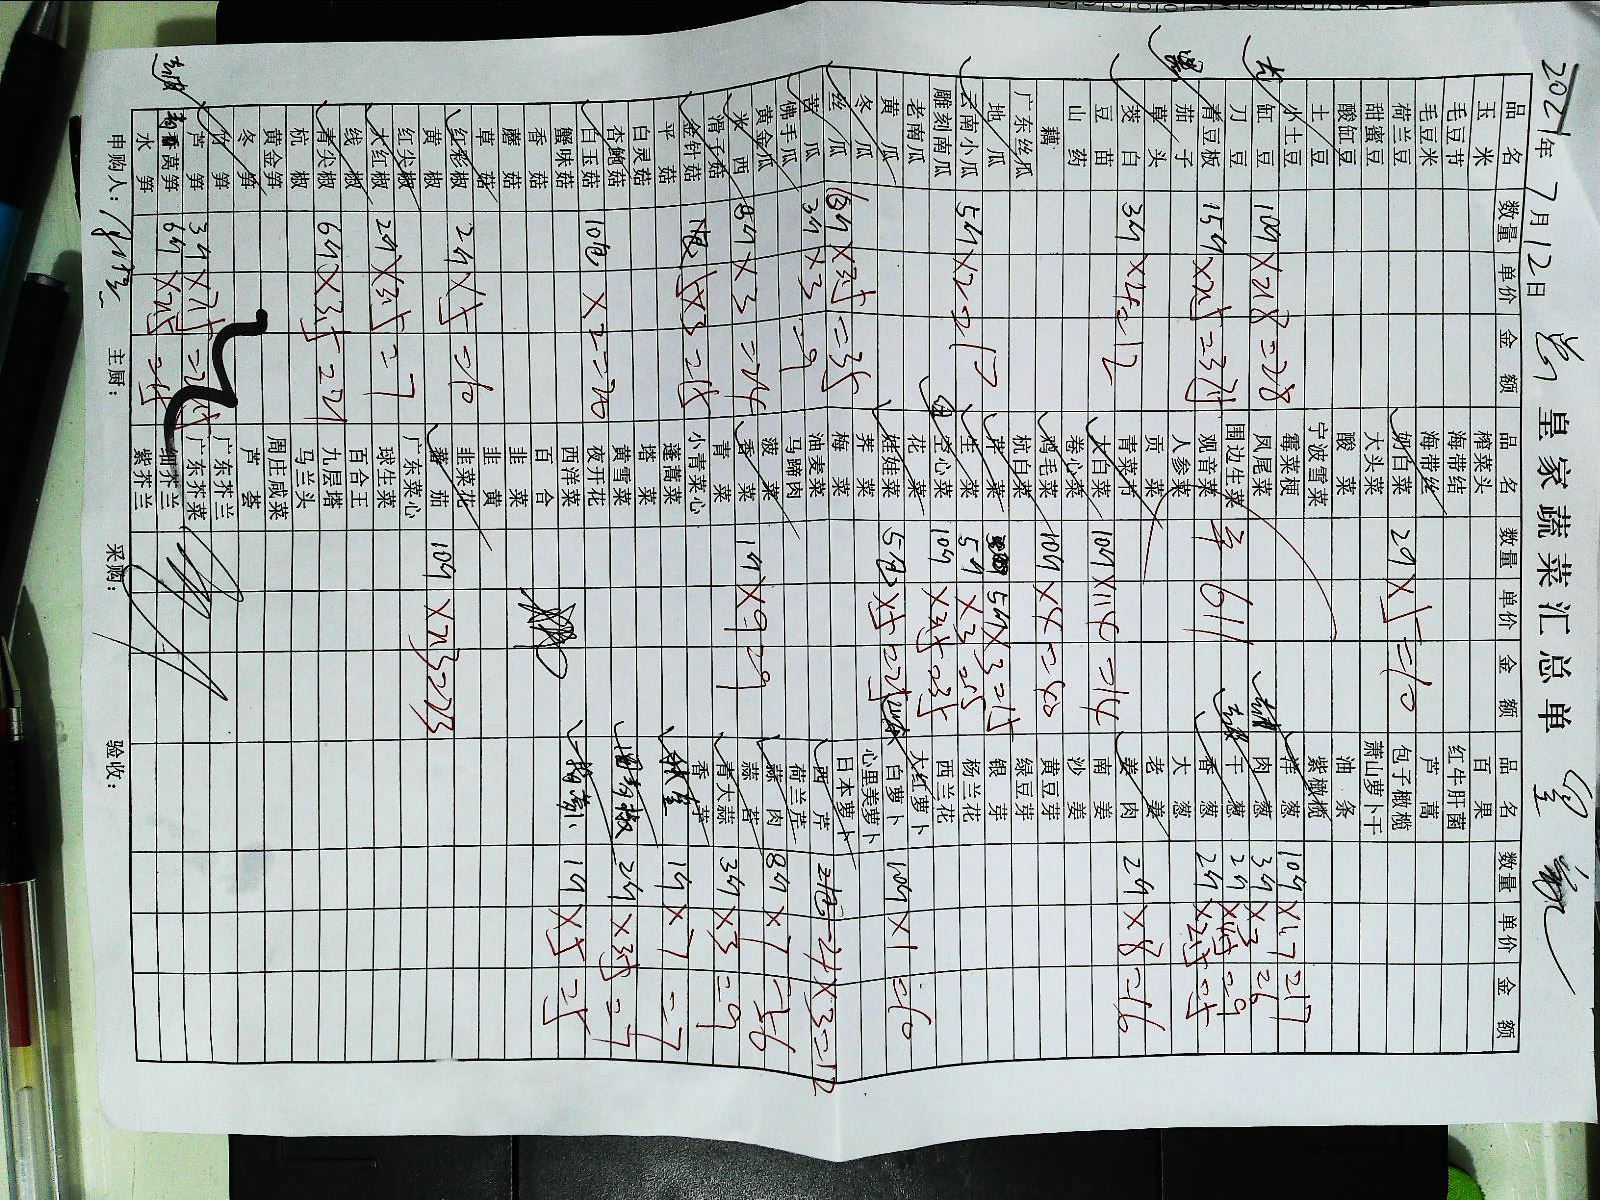 2021年 7月12日 皇家蔬菜汇总单
品名 数量 单价 金额 品名 数量 单价 金额 品名 数量 单价 金额
玉米 榨菜头 百果
毛豆节 海带结 红牛肝菌
毛豆米 海带丝 芦蒿
荷兰豆 奶白菜 2斤×5=10 包子橄榄
甜蜜豆 大头菜 萧山萝卜干
酸缸豆 酸菜 油条
土豆 宁波雪菜 紫橄榄
小土豆 霉菜梗 洋葱 10斤×1.7=17
缸豆 10斤×2.8=28 凤尾菜 肉葱 3斤
刀豆 围边生菜 干葱 2斤×4.5=9
青豆板 15斤 观音菜 611 香葱 2斤×2.5=5
茄子 人参菜 大葱
草头 贡菜 老姜
茭白 3斤×4=12 青菜竹 姜肉 2斤×8=16
豆苗 大白菜 10斤×1.4=14 南姜
山药 卷心菜 沙姜
藕 鸡毛菜 10斤×4=40 黄豆芽
广东丝瓜 杭白菜 绿豆芽
地瓜 芹菜 5斤×3=15 银芽
云南小瓜 5斤 生菜 5斤×3=15 杨兰花
雕刻南瓜 空心菜 10斤×3.5=35 西兰花
老南瓜 花菜 大红萝卜
黄瓜 娃娃菜 5包 白萝卜 10斤×1=10
冬瓜 荠菜 心里美萝卜
丝瓜 10斤×3.5=35 梅菜 日本萝卜
黄瓜 3斤×3=9 油麦菜 西芹 =4×3=12
佛手瓜 马蹄肉 荷兰芹
黄金瓜 菠菜 蒜肉 8斤×7=56
米西 8斤×3=24 香菜 1斤×9=9 蒜苔
滑子菇 青菜 青大蒜 3斤×3=9
金针菇 ×3=15 小青菜心 香芋
平菇 蓬蒿菜 1斤×7=7
白灵菇 塔菜
杏鲍菇 黄雪菜 2斤×3.5=7
白玉菇 10包×2=20 夜开花
蟹味菇 西洋菜 1斤×5=5
香菇 百合
蘑菇 韭菜
草菇 韭黄
红彩椒 2斤×5=10 韭菜花
黄椒 蕃茄 10斤
红尖椒 广东菜心
大红椒 2斤×3.5=7 球生菜
线椒 百合王
青尖椒 6斤×3.5=21 九层塔
杭椒 马兰头
黄金笋 周庄咸菜
冬笋 芦荟
竹笋 广东芥兰
芦笋 3斤 广东芥菜
莴笋 6斤×2.5=15 细芥兰
水笋 紫芥兰
申购人： 主厨： 采购： 验收：